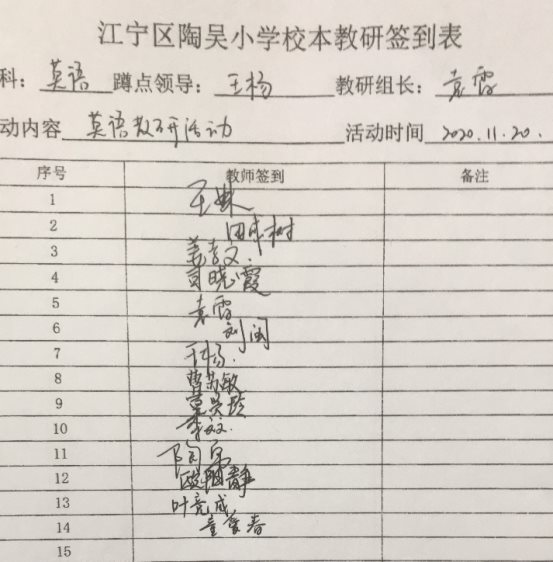 江宁区陶吴小学校本教研签到表
科：英语 蹲点领导：王杨 教研组长：袁霞
动内容 英语教研活动 活动时间 2020.11.20.
序号 教师签到 备注
1 王
2 田树
3 姜孝文.
4 司晓霞
5 袁霞
6 刘闯
7 王杨.
8 曹苏敏
9
10 李
11 陶
12 欧阳静
13 叶竞成
14 童爱春
15